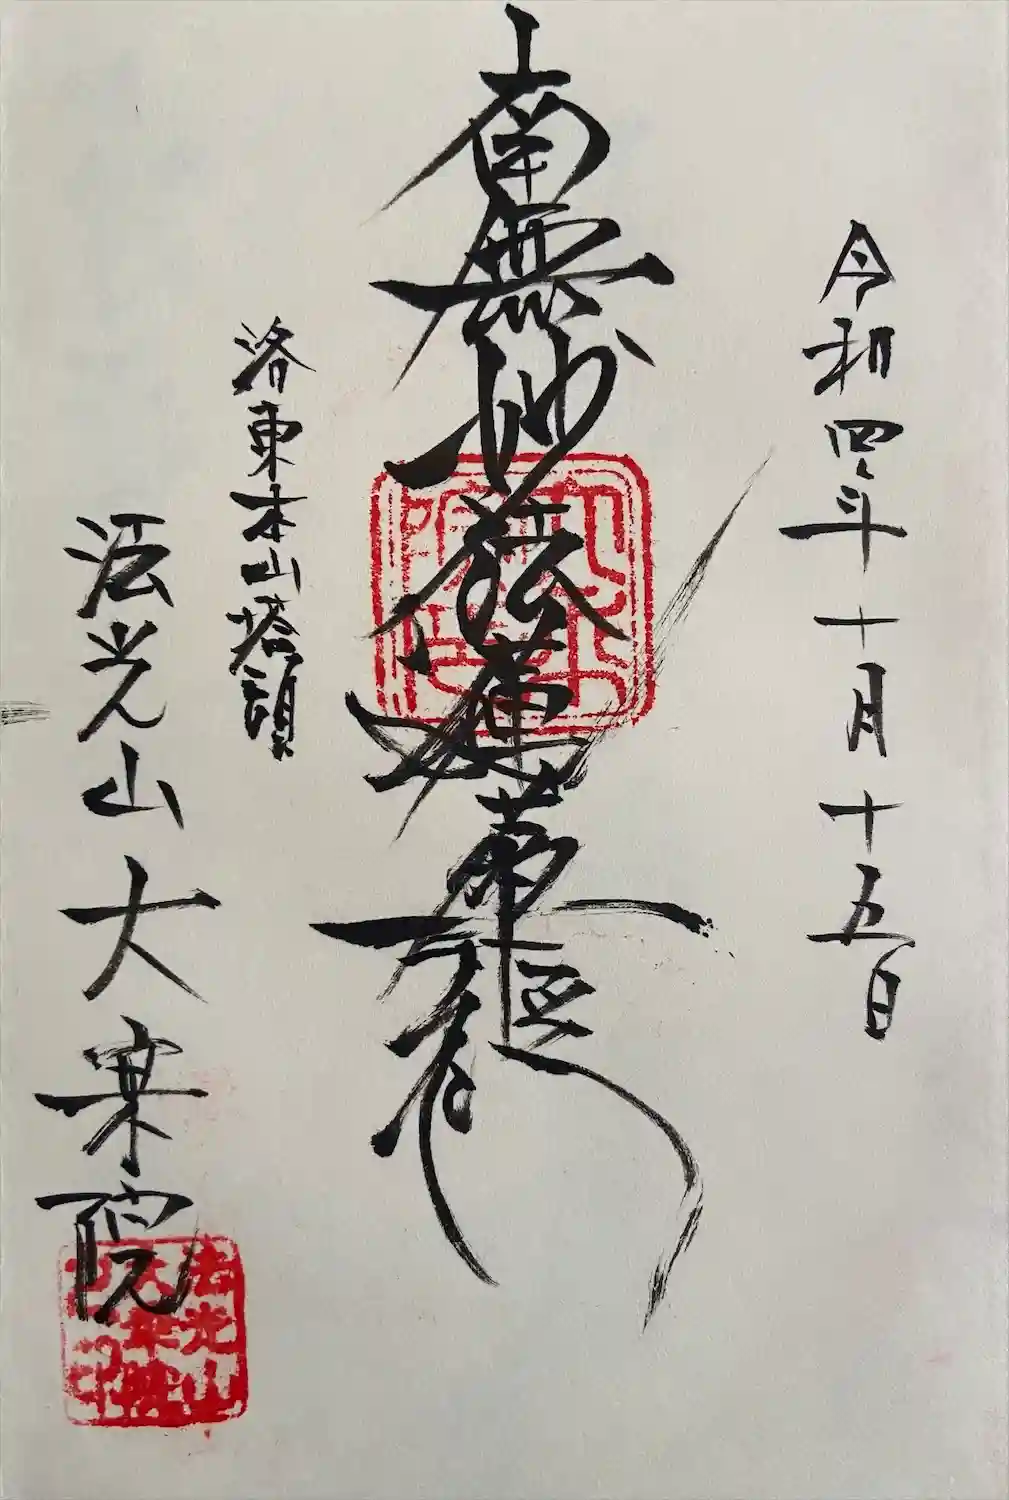 令和四年十月十五日
南無妙法蓮華経
洛東本山塔頭
法光山大乗院
法光山
大乗院